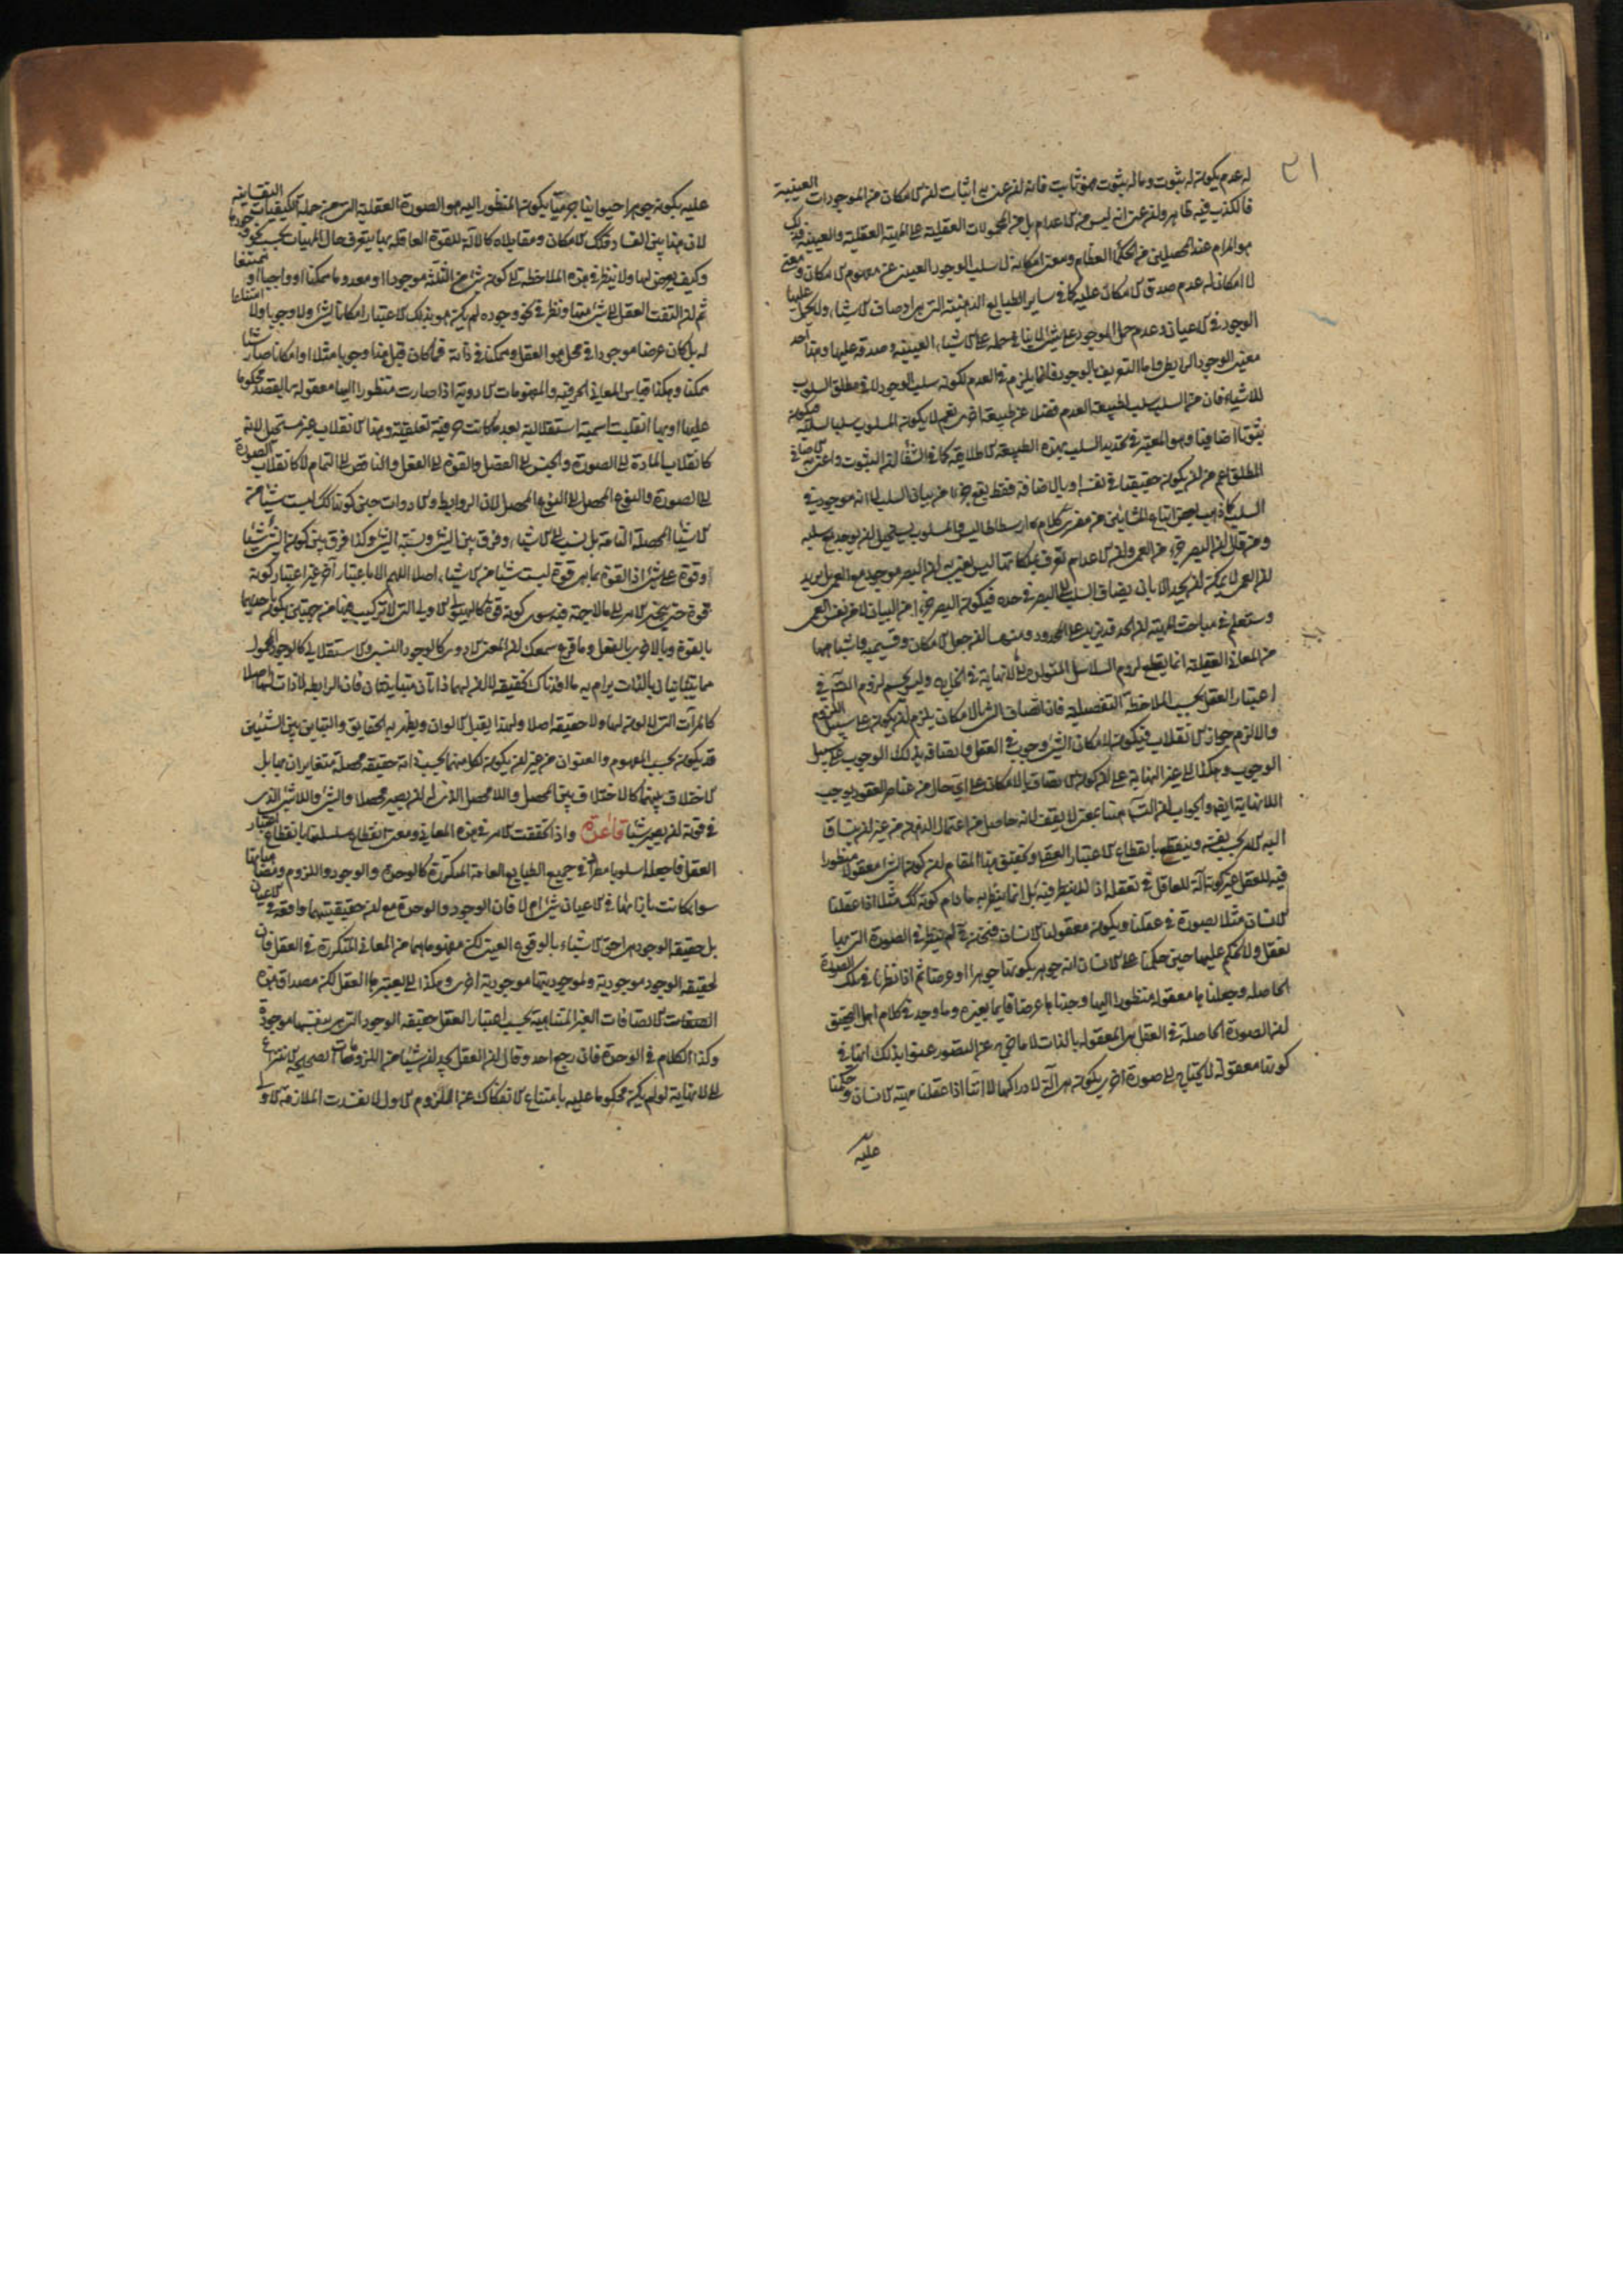 ٢١
له عدم يكون له ثبوت وما له ثبوت فهو ثابت فانه ان عنى اثبات ان الامكان من الموجودات العينية
فالكذب فيه ظاهر وان عنى انه ليس من الاعدام بل من المحمولات العقلية على المهية العقلية والعينية فذلك
هو المرام عند المحصلين من الحكماء العظام ومعنى امكانه لا سلب الوجود العينى عن مفهوم الامكان ومعنى
لا امكان له عدم صدق الامكان عليه كما فى ساير الطبايع الذهنية التى هى اوصاف الاشياء ولا تحمل عليها
الوجود فى الاعيان وعدم حمل الموجود على شئ لا ينافى حمله على الاشياء العينية وصدقه عليها وهذا احد
معنيى الوجود الرابطى واما التعريف بالوجود فانما يلزم فى العدم لكونه سلب الوجود لا فى مطلق السلوب
للاشياء فان من السلب سلب طبيعة العدم فضلا عن طبيعة اخرى نعم لا يكون المسلوب سلبا لسلبه فيكون
ثبوتا اضافيا وهو المعتبر فى تحديد السلب بهذه الطبيعة الاطلاقية كما فى الشفا ان الثبوت واعنى به الاضافى
المطلق اعم من ان يكون حقيقيا فى نفسه او بالاضافة فقط يقع جزءا من بيان السلب لا انه موجود فى
السلب كما ذهب بعض اتباع المشائين من مفسرى كلام ارسطاطاليس فالمسلوب يستحيل ان يوجد مع سلبه
ومن قال ان البصر جزء من العمى وان الاعدام تعرف بملكاتها ليس يعنى به ان البصر موجود مع العمى بل يريد
ان العمى لا يمكن ان يحد الا بان يضاف السلب الى البصر فى حده فيكون البصر جزءا من البيان لا من نفس العمى
وستعلم فى مباحث المهية ان الحد قد يزيد على المحدود ومنها ان جعل الامكان وقسيميه واشباهها
من المعانى العقلية انما يقطع لزوم السلاسل المتولدة الى لا نهاية فى الخارج وليس يحسم لزوم التسلسل فى
اعتبار العقل بحسب الملاحظة التفصيلية فان اتصاف الشئ بالامكان يلزم ان يكون على سبيل اللزوم
والا لزم جواز الانقلاب فيكون لامكان الشئ وجوب فى العقل واتصافه بذلك الوجوب على سبيل
الوجوب وهكذا الى غير النهاية على ان كون الاتصاف بالامكان على اى حال من عناصر العقود يوجب
اللانهاية ايضا والجواب ان التسلسل هنا بمعنى لا يقف لانه حاصل من اعتمال الذهن من غير ان ينساق
اليه الامر بحسب نفسه وينقطع بانقطاع الاعتبار العقلى وتحقيق هذا المقام ان كون الشئ معقولا منظورا
فيه للعقل غير كونه آلة للعاقل فى تعقله اذ لا ينظر فيه بل انما ينظر به ما دام كونه كذلك مثلا اذا عقلنا
الانسان مثلا بصورة فى عقلنا ويكون معقولنا الانسان فنحن حينئذ لم ننظر فى الصورة التى بها
نعقل ولا نحكم عليها حين حكمنا على الانسان انه جوهر بكونها جوهرا او عرضا ثم اذا نظرنا فى تلك الصورة
الحاصلة وجعلناها معقولة منظورا اليها وجدناها عرضا قايما بغيره وما وجد فى كلام اهل التحقيق
ان الصورة الحاصلة فى العقل هى المعقولة بالذات لا ما خرج عن التصور عنوا بذلك انها فى
كونها معقولة لا يحتاج الى صورة اخرى يكون هى آلة لادراكها لا انا اذا عقلنا مهية الانسان وحكمنا
عليه
عليه بكونه جوهرا حيوانيا جرميا يكون المنظور اليه هو الصورة العقلية التى من جملة الكيفيات النفسانية
لان هذا بين الفساد فكذلك الامكان ومقابلاه كالآلة للقوة العاقلة بها يتعرف حال المهيات بحسب نحو وجودها
وكيف يعرض لها ولا ينظر فى هذه الملاحظة الى كون شئ من الثلثة موجودا او معدوما ممكنا او واجبا او ممتنعا
ثم ان التفت العقل الى شئ منها ونظر فى نحو وجوده لم يكن هو بذلك الاعتبار امكانا لشئ ولا وجوبا ولا امتناعا
له بل كان عرضا موجودا فى محل هو العقل وممكنا فى ذاته فما كان قبل هذا وجوبا مثلا او امكانا صار شيئا
ممكنا وهكذا قياس المعانى الحرفية والمفهومات الادوية اذا صارت منظورا اليها معقولة بالقصد محكوما
عليها او بها انقلبت اسمية استقلالية بعد ما كانت حرفية تعلقية وهذا الانقلاب غير مستحيل لانه
كانقلاب المادة الى الصورة والجنس الى الفصل والقوة الى الفعل والناقص الى التمام لا كانقلاب الصورة
الى الصورة والنوع المحصل الى النوع المحصل لان الروابط والادوات حين كونها كذلك ليست شيئا من
الاشياء المحصلة التامة بل نسب الى الاشياء وفرق بين الشئ ونسبة الشئ وكذا فرق بين كون الشئ شيئا
او قوة على شئ اذ القوة بما هى قوة ليست شيئا من الاشياء اصلا اللهم الا باعتبار آخر غير اعتبار كونه
قوة حتى ينجر الامر الى ما لا جهة فيه سوى كونه قوة كالهيولى الاولى التى لا تركيب فيها من جهتين يكون باحديهما
بالقوة وبالاخرى بالفعل وما قرع سمعك ان المعنى الادوى كالوجود النسبى والاستقلالى كالوجود المحمول
مما يتباينان بالذات يرام به ما افدناك تحقيقه لا ان لهما ذاتان متباينتان فان الرابطة لا ذات لها اصلا
كالمرآت التى لا لون لها ولا حقيقة اصلا ولهذا يقبل الالوان ويظهر به الحقايق والتباين بين الشيئين
قد يكون بحسب المفهوم والعنوان من غير ان يكون لكل منهما بحسب ذاته حقيقة محصلة متغايران بها بل
الاختلاف بينهما كالاختلاف بين المحصل واللا محصل الذى له ان يصير محصلا والشئ واللا شئ الذى
فى قوته ان يصير شيئا قاعدة واذا تحققت الامر فى هذه المعانى ومعنى انقطاع سلسلتها بانقطاع اعتبار
العقل فاجعله اسلوبا مطردا فى جميع الطبايع العامة المتكررة كالوحدة والوجود واللزوم ومضاهياتها
سوا كانت باذائها فى الاعيان شئ ام لا فان الوجود والوحدة مع ان حقيقتهما واقعة فى الاعيان
بل حقيقة الوجود هى احق الاشياء بالوقوع العينى لكن مفهوماهما من المعانى المتكررة فى العقل فان
لحقيقة الوجود موجودية ولموجوديتها موجودية اخرى وهكذا الى ان يعتبرها العقل لكن مصداق هذه
الصفات الاتصافات الغير المتناهية بحسب اعتبار العقل حقيقة الوجود التى هى بنفسها موجودة
وكذا الكلام فى الوحدة فان رجع احد وقال ان العقل يجد ان شيئا من اللزومات الصحيحة الانتزاع
الى لا نهاية لو لم يكن محكوما عليه بامتناع الانفكاك عن الملزوم الاول لانفسدت الملازمة الاولى